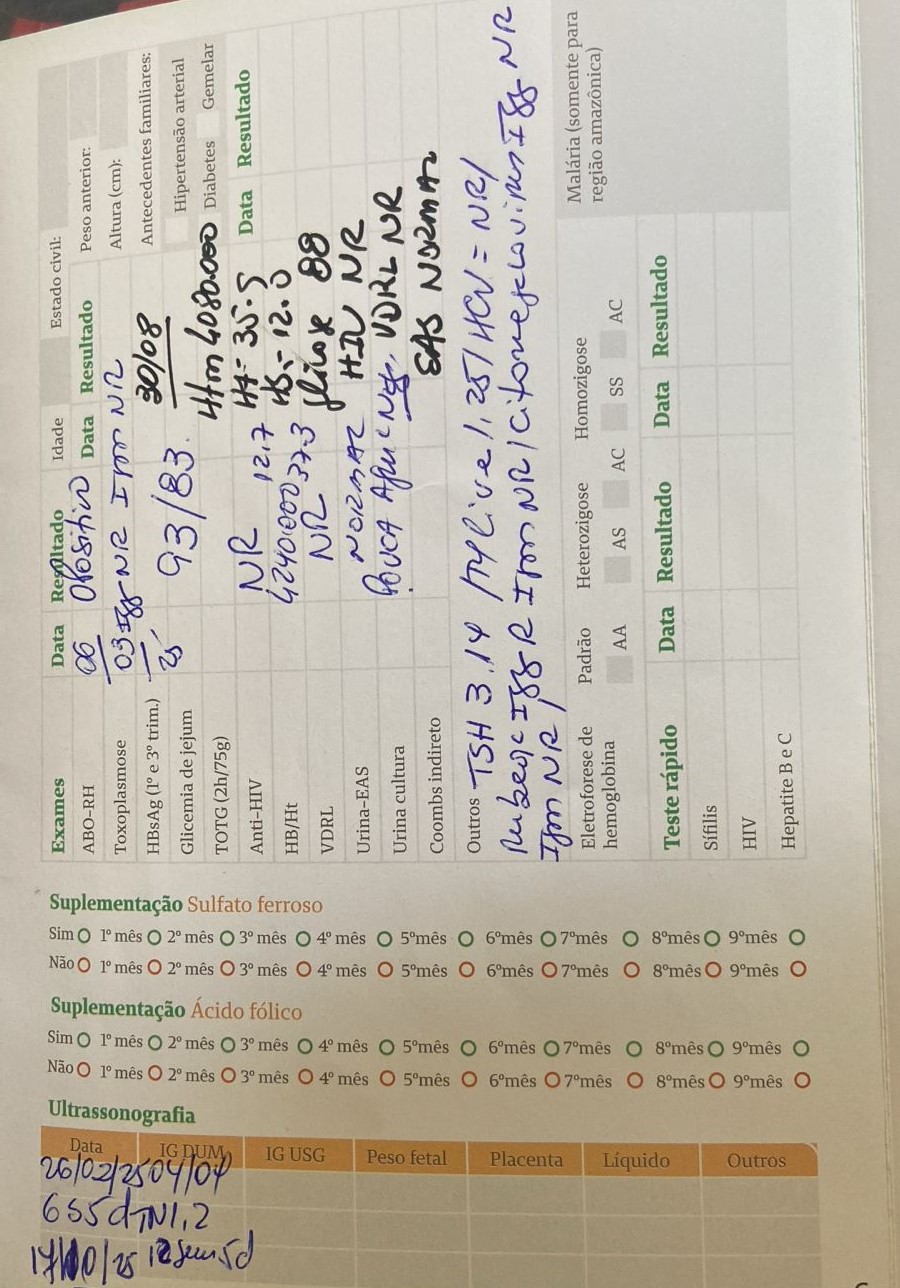 Estado civil:
Idade
Peso anterior:
Altura (cm):
Antecedentes familiares:
Hipertensão arterial
Diabetes Gemelar
Exames Data Resultado Data Resultado
ABO-RH 06 O Positivo
Toxoplasmose 03 IgG NR Igm NR
HBsAg (1º e 3º trim.) 25 30/08
Glicemia de jejum 93/83
TOTG (2h/75g) Hm 4080.000
Data Resultado
Anti-HIV NR Ht- 35.5
HB/Ht 4240.000 12.7 37.3 Hb- 12.0
VDRL NR glicose 88
Urina-EAS NORMAL HIV NR
Urina cultura VDRL NR
Coombs indireto EAS NORMAL
Outros TSH 3.14 1,25/HCV = NR/
IgG R Igm NR/Citomegalovirus IgG NR
Igm NR/
Eletroforese de hemoglobina
Padrão Heterozigose Homozigose
AA AS AC SS AC
Malária (somente para região amazônica)
Teste rápido Data Resultado Data Resultado
Sífilis
HIV
Hepatite B e C
Suplementação Sulfato ferroso
Sim 1º mês 2º mês 3º mês 4º mês 5ºmês 6ºmês 7ºmês 8ºmês 9ºmês
Não 1º mês 2º mês 3º mês 4º mês 5ºmês 6ºmês 7ºmês 8ºmês 9ºmês
Suplementação Ácido fólico
Sim 1º mês 2º mês 3º mês 4º mês 5ºmês 6ºmês 7ºmês 8ºmês 9ºmês
Não 1º mês 2º mês 3º mês 4º mês 5ºmês 6ºmês 7ºmês 8ºmês 9ºmês
Ultrassonografia
Data IG DUM IG USG Peso fetal Placenta Líquido Outros
26/02/25 04/04
6s5d TN1,2
25 12sem5d